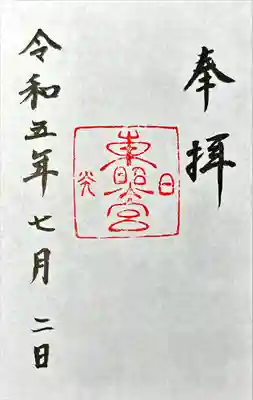 奉拝
東照宮
日光
令和五年七月二日